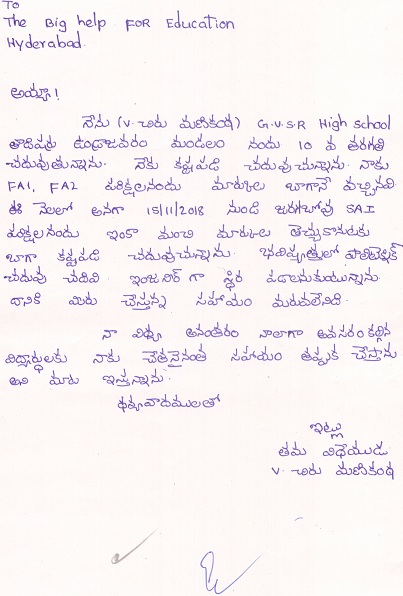 To
The Big help FOR Education
Hyderabad.
అయ్యా!
నేను (V. చిరు మణికంఠ) G.V.S.R High school
తాడిపర్రు ఉండ్రాజవరం మండలం నందు 10 వ తరగతి
చదువుతున్నాను. నేకు కష్టపడి చదువుచున్నాను. నాకు
FA1, FA2 పరిక్షలనందు మార్కులు బాగానే వచ్చినవి
ఈ నెలలో అనగా 15/11/2018 నుండి జరగబోవు SAI
పరిక్షలనందు ఇంకా మంచి మార్కులు తెచ్చుకొనుటకు
బాగా కష్టపడి చదువుచున్నాను. భవిష్యత్తులో పాలిటెక్నిక్
చదువు చదివి ఇంజనీర్ గా స్థిర పడాలనుకుంటున్నాను.
దానికి మీరు చేస్తున్న సహాయం మరువలేనిది.
నా విద్య అనంతరం నాలాగా అవసరం కల్గిన
విద్యార్థులకు నాకు చేతనైనంత సహాయం తప్పక చేస్తాను
అని మాట ఇస్తున్నాను.
ధన్యవాదములతో
ఇట్లు
తమ విధేయుడు
V. చిరు మణికంఠ